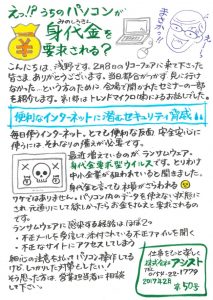 えっ!? うちのパソコンが
みのしろきん
身代金を
要求される?
まさか~
こんにちは、浅野です。2月8日のリコーフェアに来て下さった
皆さま ありがとうございます。当日 都合がつかず 見に行け
なかった… という方のために 会場で開かれたセミナーの一部
を紹介します。第1部は トレンドマイクロ(株)によるお話しでした。
便利なインターネットに潜むセキュリティ脅威
毎日使うインターネット。とても便利な反面 安全安心に
使うには それなりの備えが必要です。
最近増えているのが、ランサムウェア・
身代金要求型ウイルスです。とりわけ
中小企業が狙われていると聞きました。
身代金と言っても お嬢がさらわれる
ワケではありません。パソコン内のデータを使えない状態にさ
れ、元通りにして欲しかったら お金を払えと要求されるの
です。
ランサムウェアに感染する経路はほぼ2つ
・不正メールを受信して添付されている不正ファイルを開く
・不正なサイトに アクセスしてしまう
細心の注意を払って パソコン操作して
も、しっかりした対策をしたい!
そう思った方は、営業担当者に相談
して下さい。
仕事をもっと楽しく
株式会社アシスト
TEL
2017年4月
第50号